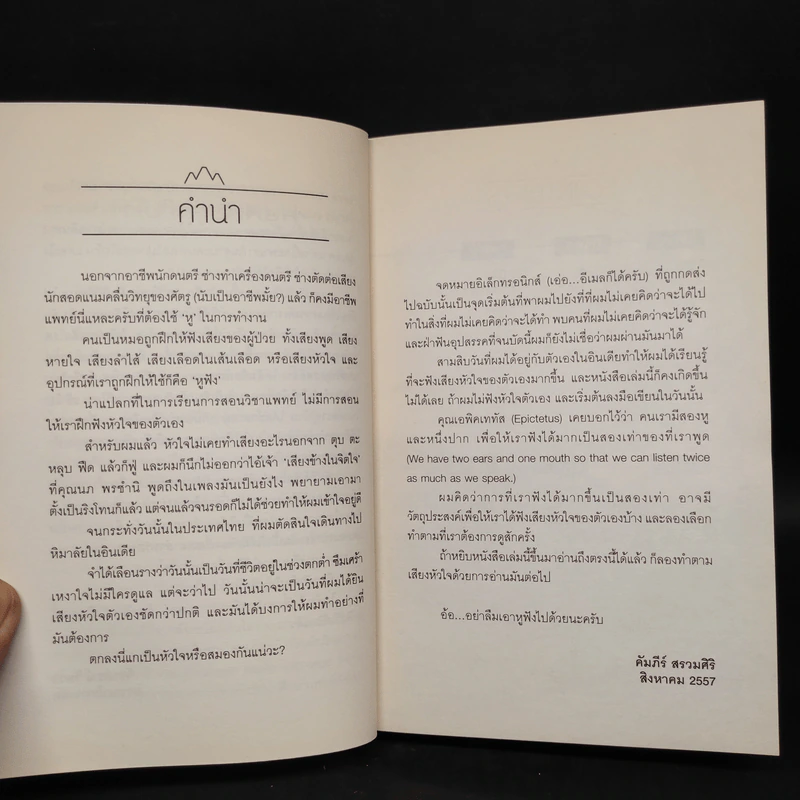 คำนำ
นอกจากอาชีพนักดนตรี ช่างทำเครื่องดนตรี ช่างตัดต่อเสียง
นักสอดแนมคลื่นวิทยุของศัตรู (นับเป็นอาชีพมั้ย?) แล้ว ก็คงมีอาชีพ
แพทย์นี่แหละครับที่ต้องใช้ ‘หู’ ในการทำงาน
คนเป็นหมอถูกฝึกให้ฟังเสียงของผู้ป่วย ทั้งเสียงพูด เสียง
หายใจ เสียงลำไส้ เสียงเลือดในเส้นเลือด หรือเสียงหัวใจ และ
อุปกรณ์ที่เราถูกฝึกให้ใช้ก็คือ ‘หูฟัง’
น่าแปลกที่ในการเรียนการสอนวิชาแพทย์ ไม่มีการสอน
ให้เราฝึกฟังหัวใจของตัวเอง
สำหรับผมแล้ว หัวใจไม่เคยทำเสียงอะไรนอกจาก ตุบ ตะ
หลุบ ฟืด แล้วก็ฟู่ และผมก็นึกไม่ออกว่าไอ้เจ้า ‘เสียงข้างในจิตใจ’
ที่คุณนภ พรชำนิ พูดถึงในเพลงมันเป็นยังไง พยายามเอามา
ตั้งเป็นริงโทนก็แล้ว แต่จนแล้วจนรอดก็ไม่ได้ช่วยทำให้ผมเข้าใจอยู่ดี
จนกระทั่งวันนั้นในประเทศไทย ที่ผมตัดสินใจเดินทางไป
หิมาลัยในอินเดีย
จำได้เลือนรางว่าวันนั้นเป็นวันที่ชีวิตอยู่ในช่วงตกต่ำ ซึมเศร้า
เหงาใจไม่มีใครดูแล แต่จะว่าไป วันนั้นน่าจะเป็นวันที่ผมได้ยิน
เสียงหัวใจตัวเองชัดกว่าปกติ และมันได้บงการให้ผมทำอย่างที่
มันต้องการ
ตกลงนี่แกเป็นหัวใจหรือสมองกันแน่วะ?
จดหมายอิเล็กทรอนิกส์ (เอ่อ...อีเมลก็ได้ครับ) ที่ถูกกดส่ง
ไปฉบับนั้นเป็นจุดเริ่มต้นที่พาผมไปยังที่ที่ผมไม่เคยคิดว่าจะได้ไป
ทำในสิ่งที่ผมไม่เคยคิดว่าจะได้ทำ พบคนที่ผมไม่เคยคิดว่าจะได้รู้จัก
และฝ่าฟันอุปสรรคที่จนบัดนี้ผมก็ยังไม่เชื่อว่าผมผ่านมันมาได้
สามสิบวันที่ผมได้อยู่กับตัวเองในอินเดียทำให้ผมได้เรียนรู้
ที่จะฟังเสียงหัวใจของตัวเองมากขึ้น และหนังสือเล่มนี้ก็คงเกิดขึ้น
ไม่ได้เลย ถ้าผมไม่ฟังหัวใจตัวเอง และเริ่มต้นลงมือเขียนในวันนั้น
คุณเอพิคเททัส (Epictetus) เคยบอกไว้ว่า คนเรามีสองหู
และหนึ่งปาก เพื่อให้เราฟังได้มากเป็นสองเท่าของที่เราพูด
(We have two ears and one mouth so that we can listen twice
as much as we speak.)
ผมคิดว่าการที่เราฟังได้มากขึ้นเป็นสองเท่า อาจมี
วัตถุประสงค์เพื่อให้เราได้ฟังเสียงหัวใจของตัวเองบ้าง และลองเลือก
ทำตามที่เราต้องการดูสักครั้ง
ถ้าหยิบหนังสือเล่มนี้ขึ้นมาอ่านถึงตรงนี้ได้แล้ว ก็ลองทำตาม
เสียงหัวใจด้วยการอ่านมันต่อไป
อ้อ...อย่าลืมเอาหูฟังไปด้วยนะครับ
คัมภีร์ สรวมศิริ
สิงหาคม 2557